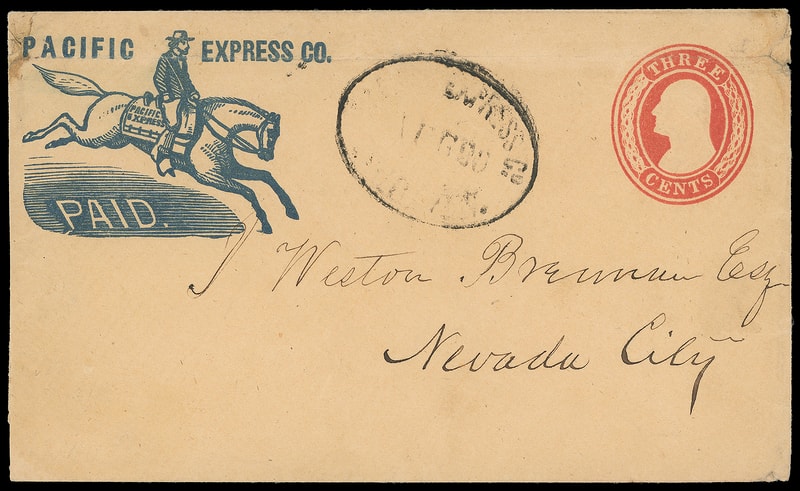 PACIFIC EXPRESS CO.
PACIFIC
EXPRESS
PAID.
EXPRESS CO
THREE
CENTS
J Weston Brennan Esq
Nevada City